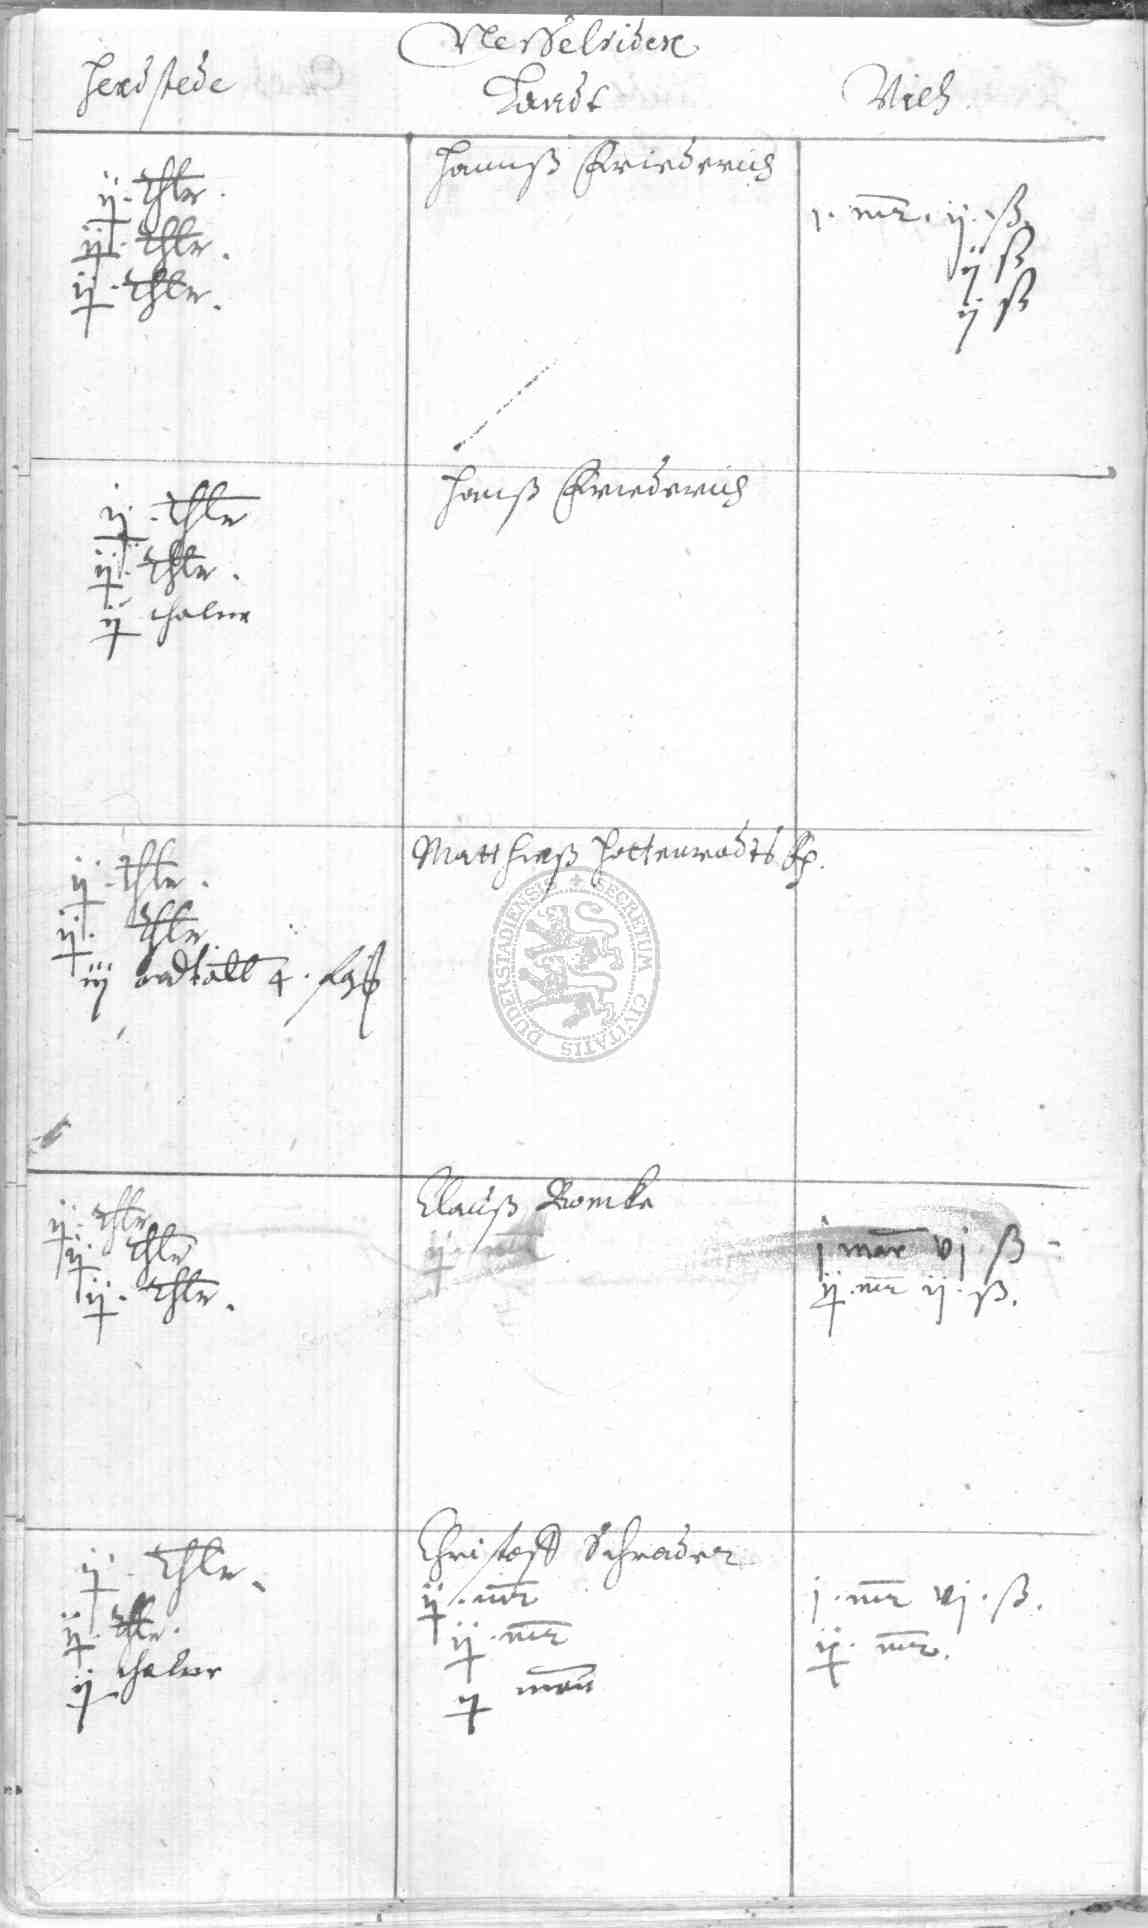 Nesselrider
Herdstede Landt Vieh
Hannß Friederich
ij thlr. j. mr. ij. ß.
ij thlr. ij ß
ij thlr. ij ß
Hanß Friederich
ij thlr
ij thlr.
ij thaler
Matthieß Hottenrodts
ij thlr.
ij thlr
iij 4.
DUDERSTADIENSIS SECRETUM CIVITATIS
Clauß Bomke
ij thlr ij mr j mar vj ß
ij thlr ij mr ij ß.
ij thlr.
Christoff Schrader
ij thlr. ij mr j mr vj ß.
ij thlr. ij mr ij mr.
ij thaler ij